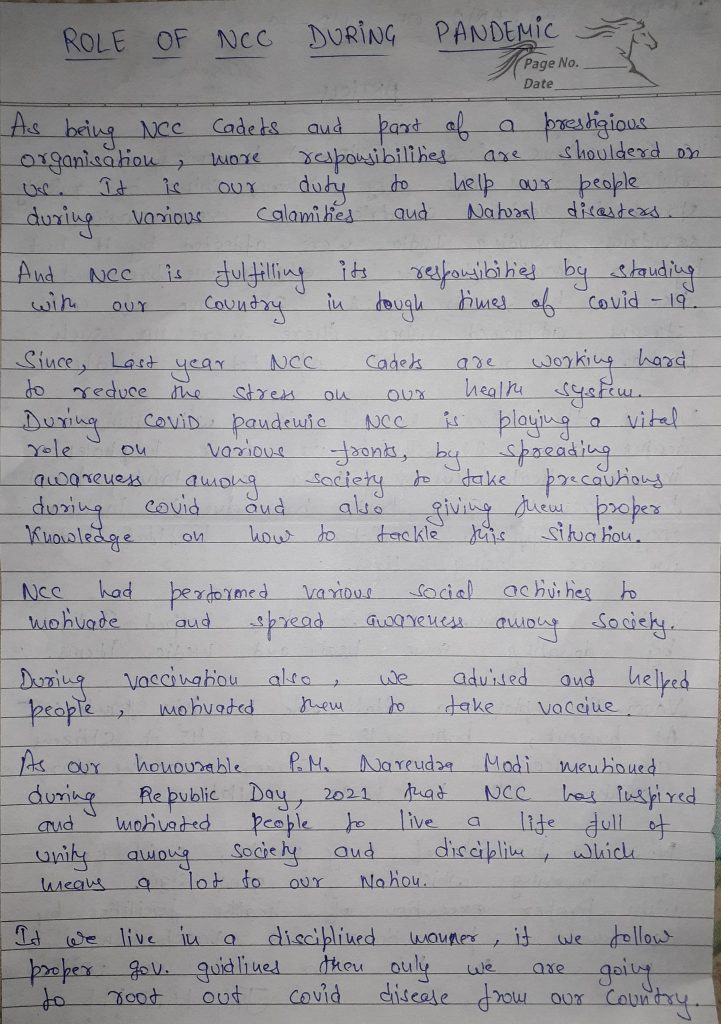 ROLE OF NCC DURING PANDEMIC
Page No.
Date
As being NCC Cadets and part of a prestigious
organisation, more responsibilities are shoulderd on
us. It is our duty to help our people
during various Calamities and Natural disasters.
And NCC is fulfilling its responsibities by standing
with our Country in tough times of covid-19.
Since, Last year NCC Cadets are working hard
to reduce the stress on our health system.
During COVID pandemic NCC is playing a vital
role on various fronts, by spreading
awareness among society to take precautions
during covid and also giving them proper
Knowledge on how to tackle this situation.
NCC had performed various social activities to
motivate and spread awareness among society.
During vaccination also, we advised and helped
people, motivated them to take vaccine.
As our honourable P.M. Narendra Modi mentioned
during Republic Day, 2021 that NCC has inspired
and motivated people to live a life full of
unity among society and discipline, which
means a lot to our Nation.
If we live in a disciplined manner, if we follow
proper gov. guidlines then only we are going
to root out covid disease from our country.